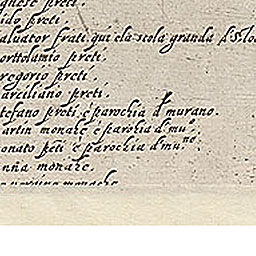 gnese preti.
ido preti.
aluator frati qui e la scola granda d'S.to
ortolamio preti.
regorio preti.
arciliano preti.
tefano preti è parochia d' murano.
artin monahe è parohia d' mu.no
onato p̃ti è parochia d' mu.no
nña monahe.